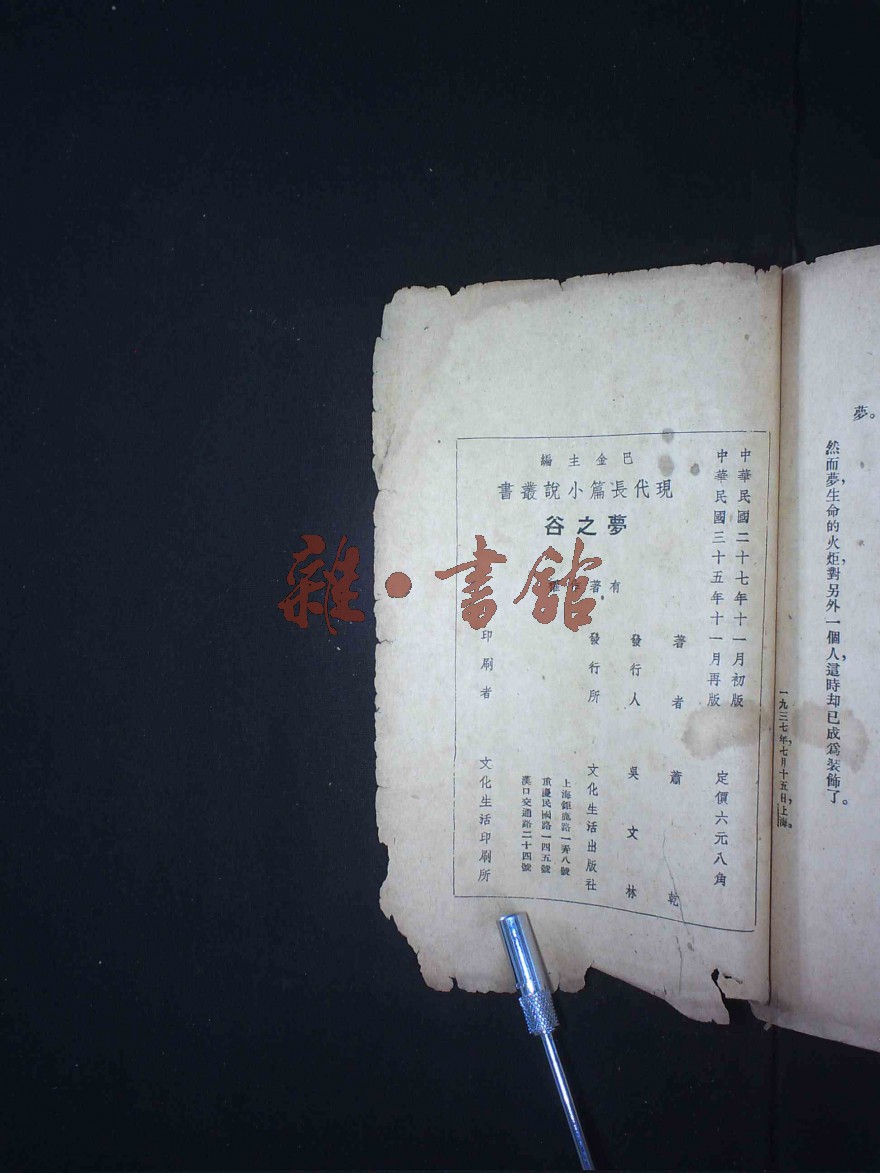 夢。
然而夢，生命的火炬，對另外一個人，這時却已成爲裝飾了。
一九三七年，七月十五日，上海。
中華民國二十七年十一月初版
中華民國三十五年十一月再版
定價六元八角
巴金主編
現代長篇小說叢書
夢之谷
有著
著者 蕭乾
發行人 吳文林
發行所 文化生活出版社
上海鉅鹿路一弄八號
重慶民國路一四五號
漢口交通路二十四號
印刷者 文化生活印刷所
雜·書館